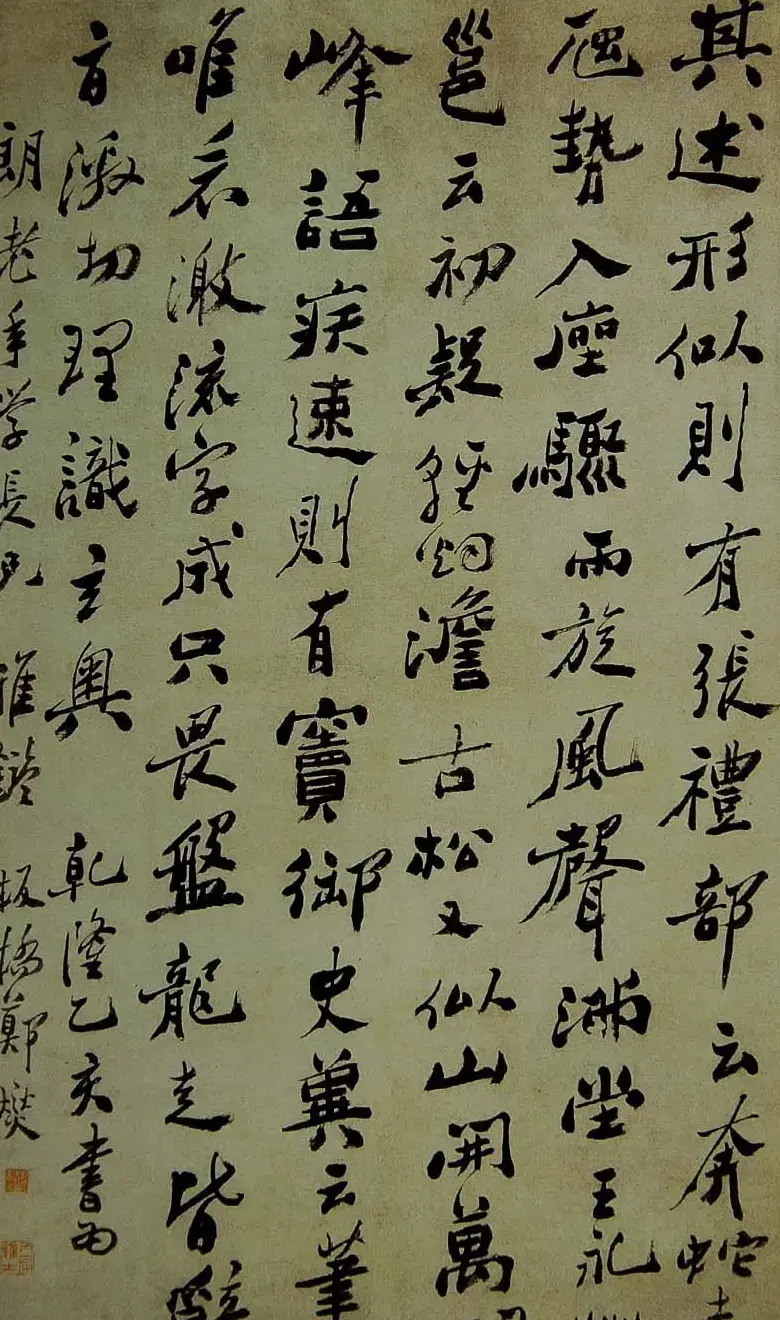 其述形似則有張禮部云奔蛇走
虺勢入座驟雨旋風聲滿堂王永
邕云初疑輕烟澹古松又似山開萬
峰語疾速則有竇御史冀云筆
唯看激流字成只畏盤龍走皆
旨激切理識玄奧 乾隆乙亥書為
朗老年學長兄 雅鑒 板橋鄭燮